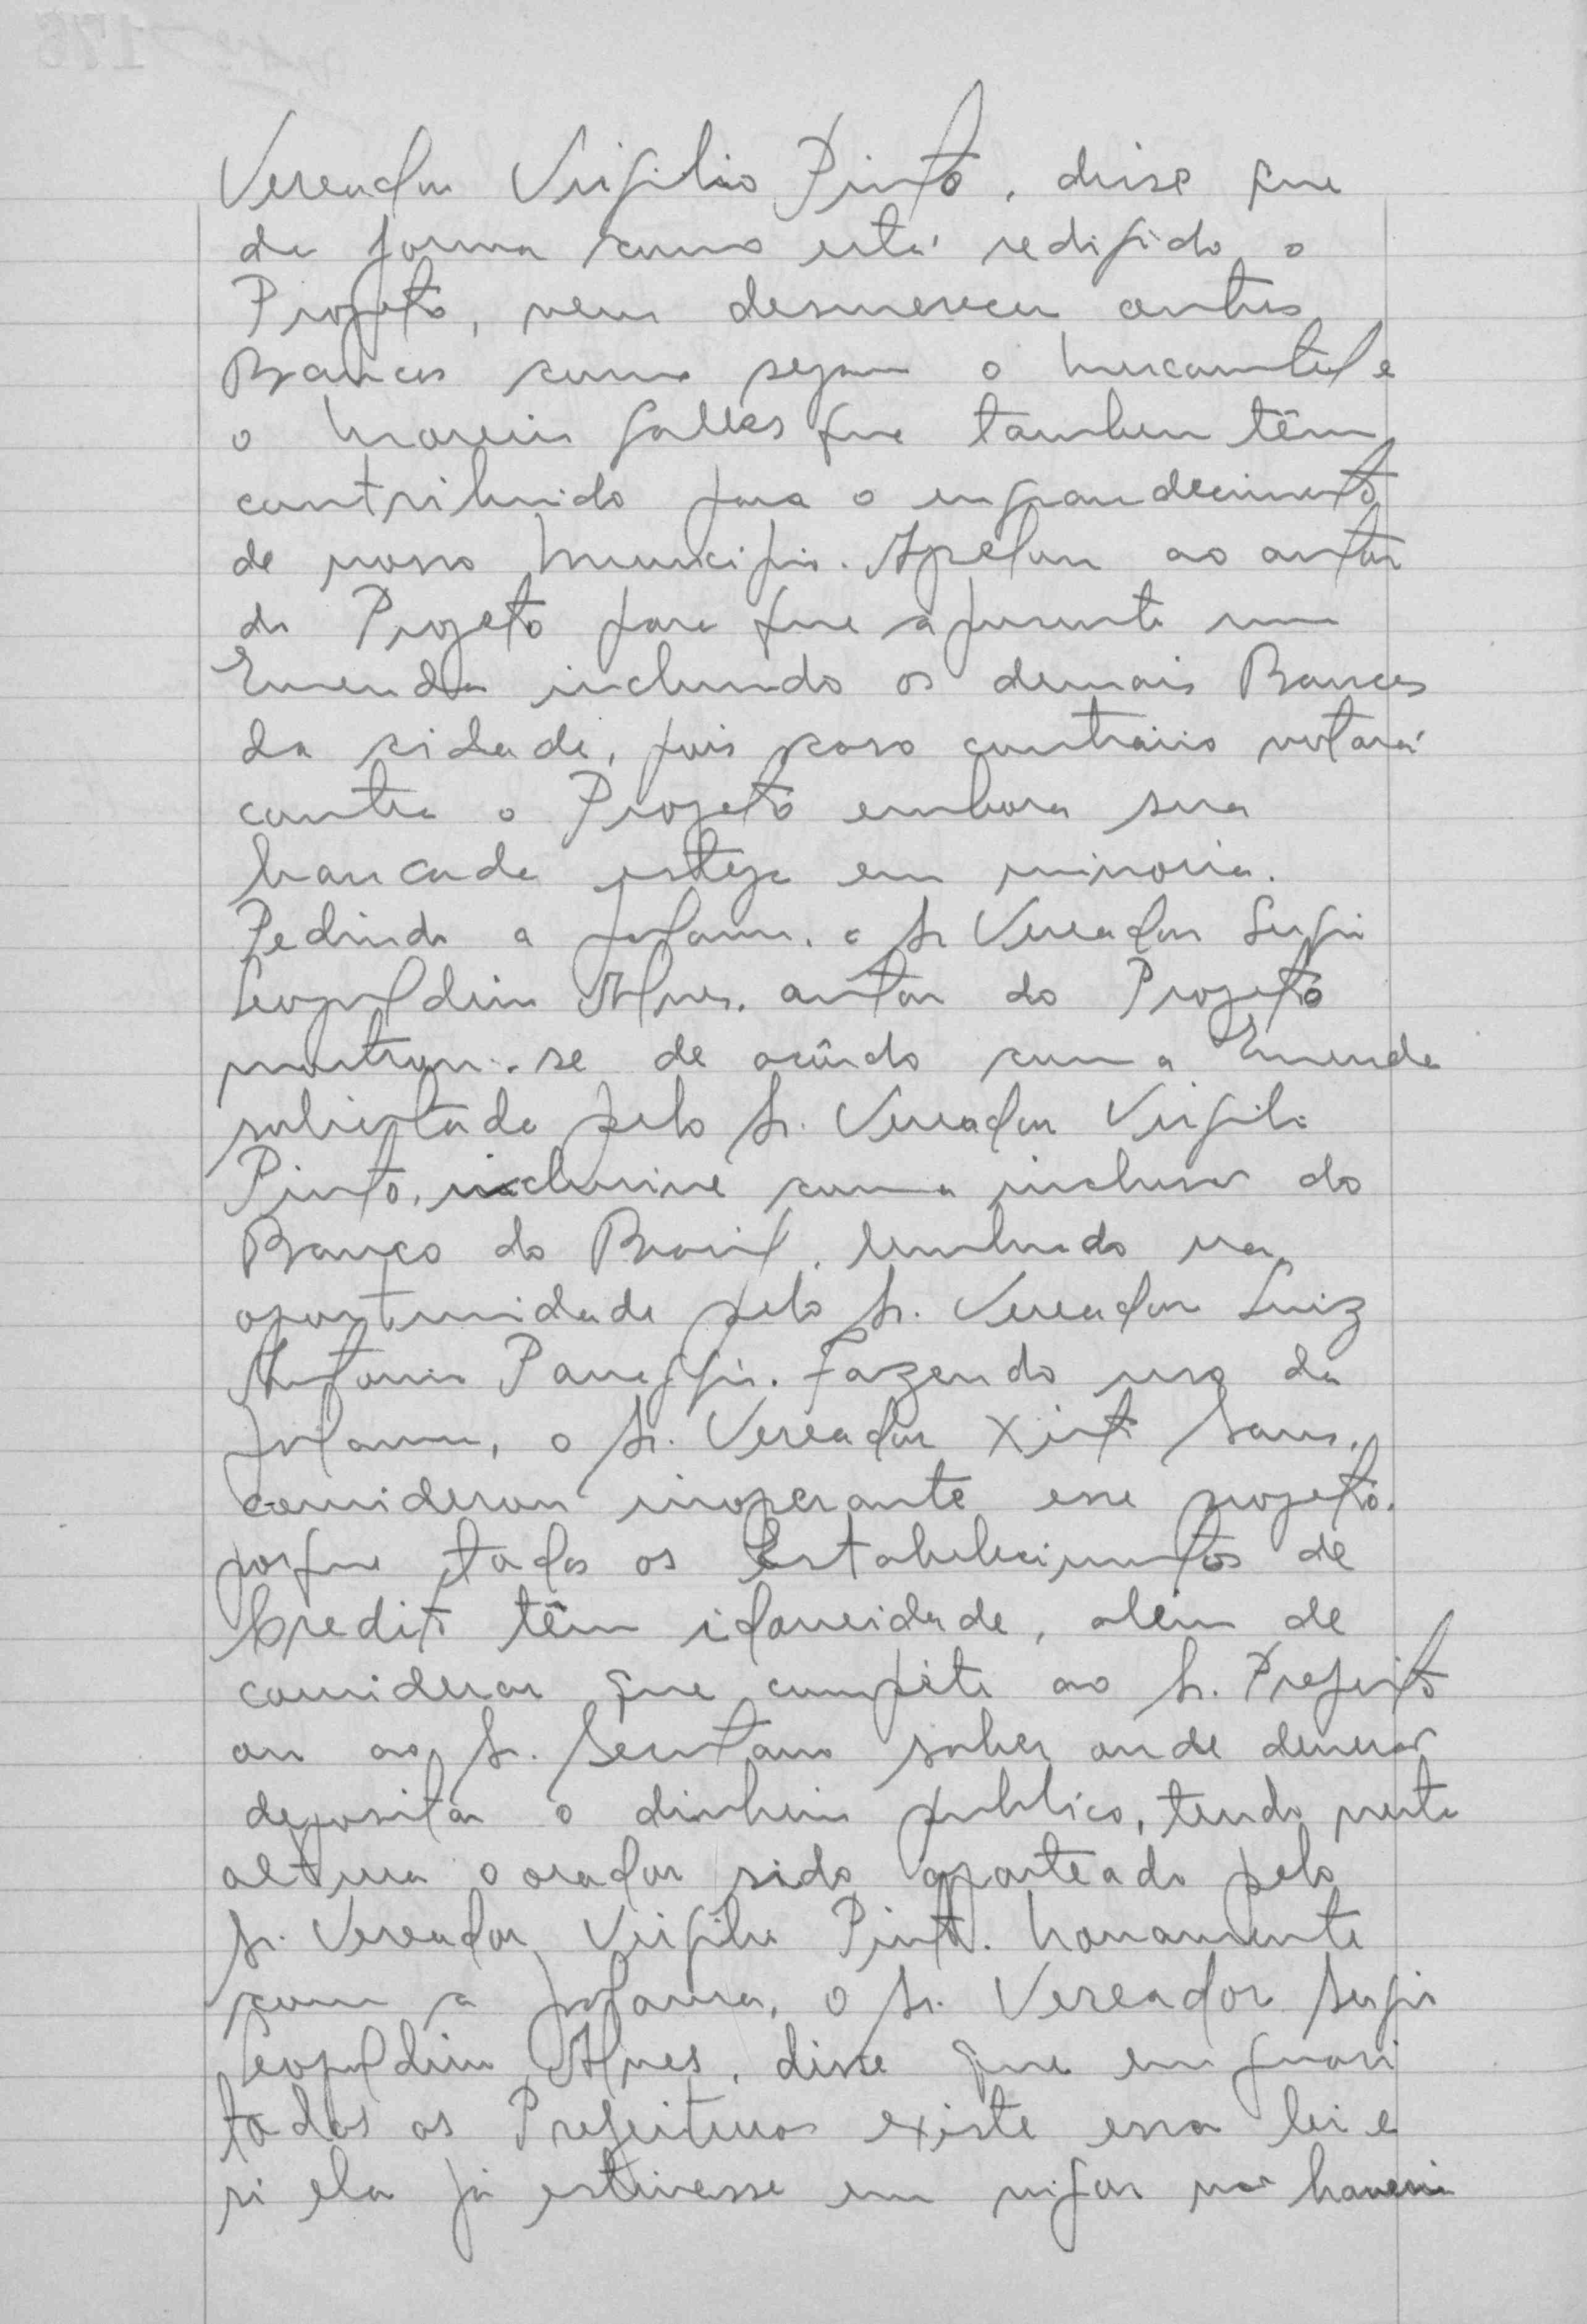 Vereador Virgilio Pinto, disse que
da forma como está redigido o
Projeto, vem desmerecer outros
Bancos como sejam o Mercantil e
o Moreira Salles que tambem têm
contribuido para o engrandecimento
de nosso Municipio. Apelou ao autor
do Projeto para que apresente uma
Emenda incluindo os demais Bancos
da cidade, pois caso contrário votará
contra o Projeto embora sua
bancada esteja em minoria.
Pedindo a palavra, o Sr Vereador Sergio
Leopoldino Alves, autor do Projeto
mostrou-se de acôrdo com a Emenda
solicitada pelo Sr. Vereador Virgilio
Pinto, inclusive com a inclusão do
Banco do Brasil, lembrado na
oportunidade pelo Sr. Vereador Luiz
Antonio Panaggio. Fazendo uso da
palavra, o Sr. Vereador
considerou inoperante esse projeto,
porque todos os Estabelecimentos de
Credito têm idoneidade, além de
considerar que compéte ao Sr. Prefeito
ou ao Sr. saber onde deverão
depositar o dinheiro publico, tendo nesta
altura o orador sido aparteado pelo
Sr. Vereador Virgilio Pinto. Novamente
com a palavra, o Sr. Vereador Sergio
Leopoldino Alves, disse que em quasi
todas as Prefeituras existe essa lei e
si ela já estivesse em vigor não haveria